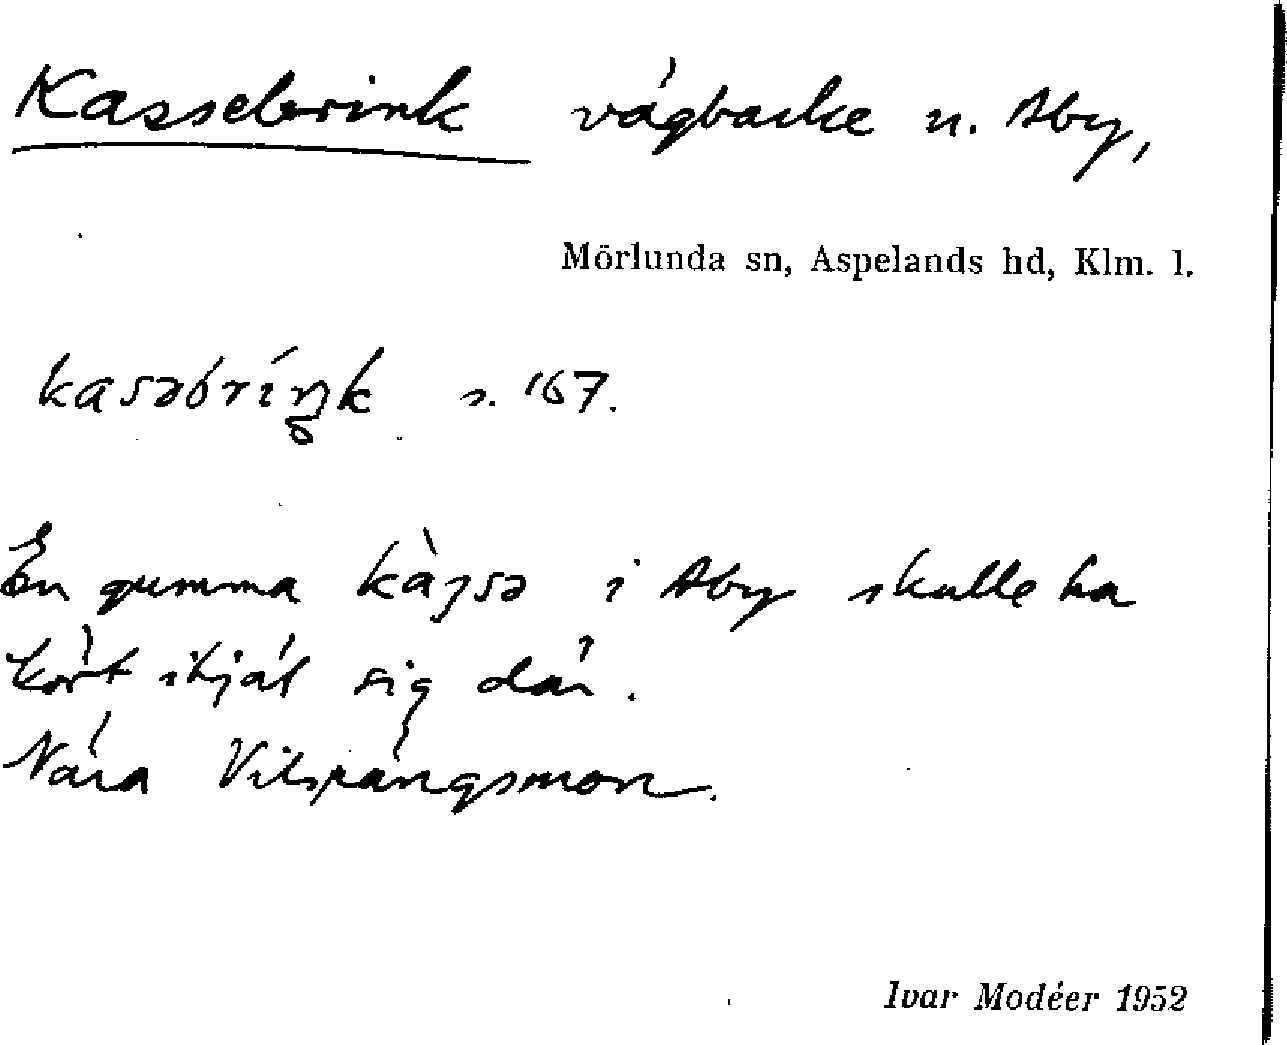 Kassebrink vägbacke n. Åby,
Mörlunda sn, Aspelands hd, Klm. l.
kasəbríŋk s. 167.
En gumma kàjsə i Åby skulle ha
kört ihjäl sig där.
Nära Vilsrängsmon.
Ivar Modéer 1952